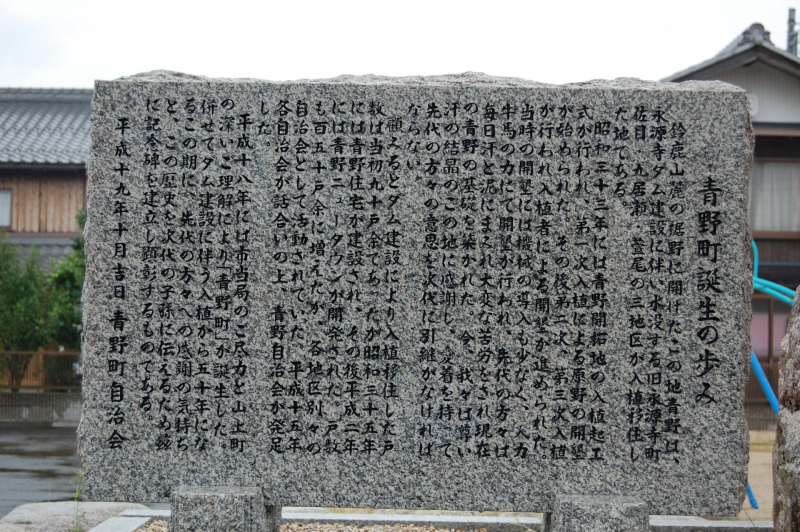 青野町誕生の歩み
鈴鹿山麓の裾野に開けたこの地青野は、
永源寺ダム建設に伴い水没する旧永源寺町
佐目、九居瀬・萱尾の三地区が入植移住し
た地である。
昭和三十三年には青野開拓地の入植起工
式が行われ、第一次入植による原野の開墾
が始められた。その後第二次、第三次入植
が行われ入植者による開墾が進められた。
当時の開墾には機械の導入も少なく、人力
牛馬の力にて開墾が行われ、先代の方々は
毎日汗と泥にまみれ大変な苦労をされ現在
の青野の基礎を築かれた。今、我々は尊い
汗の結晶のこの地に感謝し、愛着を持って
先代の方々の意思を次代に引継がなければ
ならない。
顧みるとダム建設により入植移住した戸
数は当初九十戸余であったが昭和三十五年
には青野住宅が建設され、その後平成二年
には青野ニュータウンが開発された。戸数
も百五十戸余に増えたが、各地区別々の
自治会として活動されていた。平成十五年
各自治会が話合いの上、青野自治会が発足
した。
平成十八年には市当局のご尽力と山上町
の深いご理解により「青野町」が誕生した。
併せてダム建設に伴う入植から五十年にな
るこの期に、先代の方々への感謝の気持ち
と、この歴史を次代の子孫に伝えるため茲
に記念碑を建立し顕彰するものである。
平成十九年十月吉日 青野町自治会